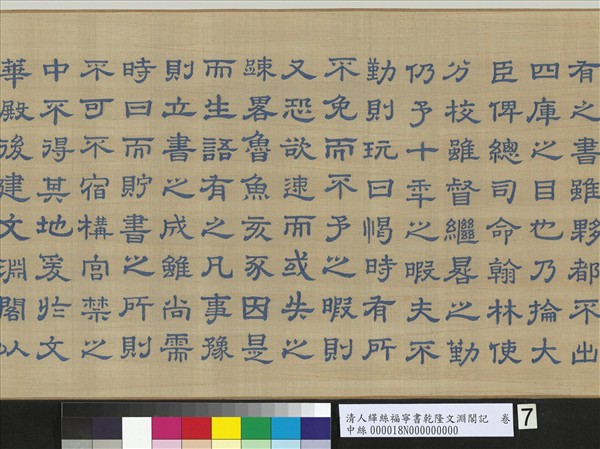 有之書雖夥都不出
四庫之目也乃掄大
臣俾總司命翰林使
分校雖督繼晷之勤
仍予十年之暇夫不
勤則玩日愒時有所
不免而不予之暇則
又恐欲速而或失之
疎畧魯魚亥豕因是
而生語有之凡事豫
則立書之成雖尚需
時日而貯書之所則
不可不宿構宮禁之
中不得其地爰於文
華殿後建文淵閣以
清人緙絲福寧書乾隆文淵閣記 卷
中絲 000018N000000000
7